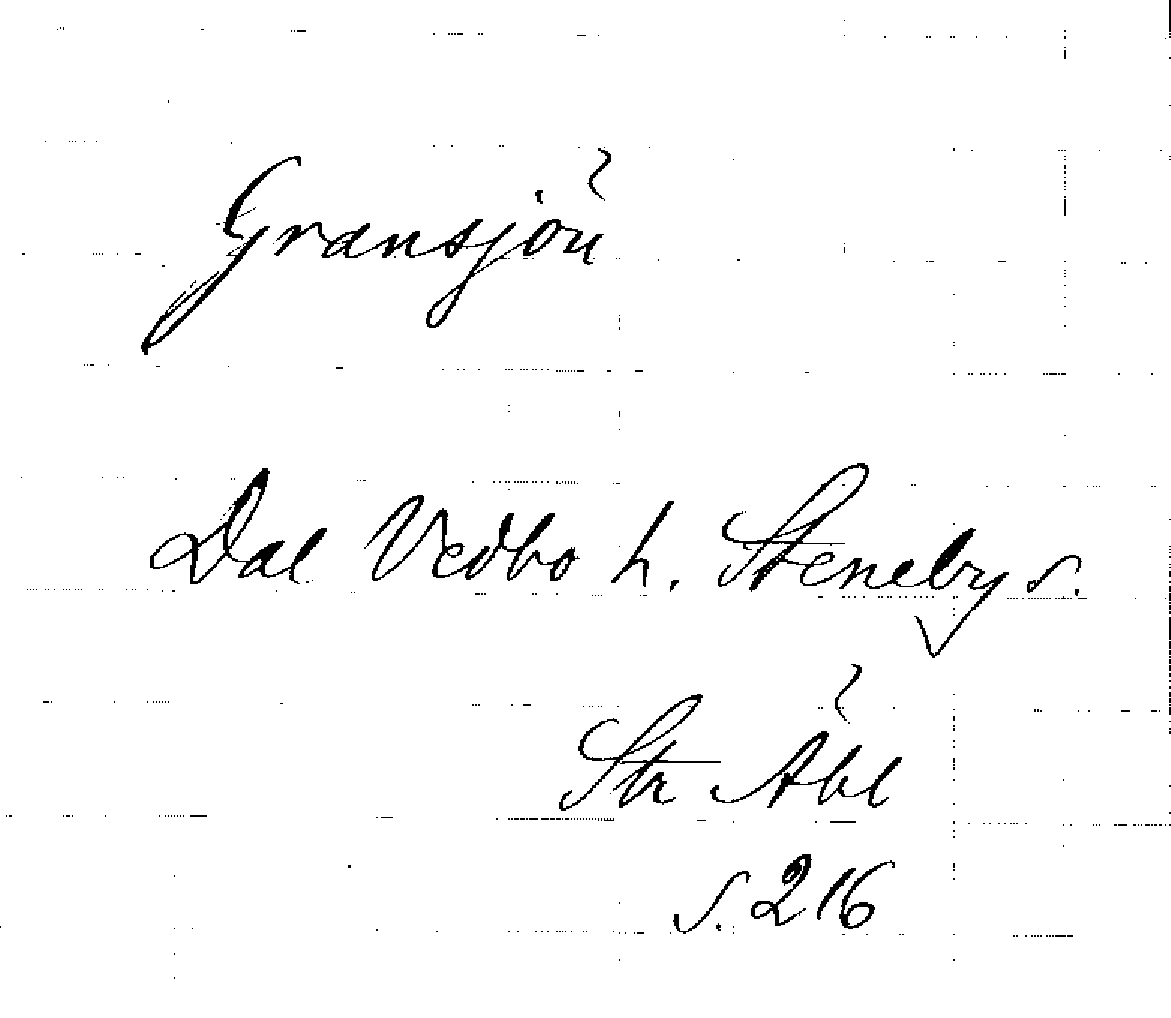 Gransjön
Dal Vedbo h. Steneby s.
Str Åbl
s. 216